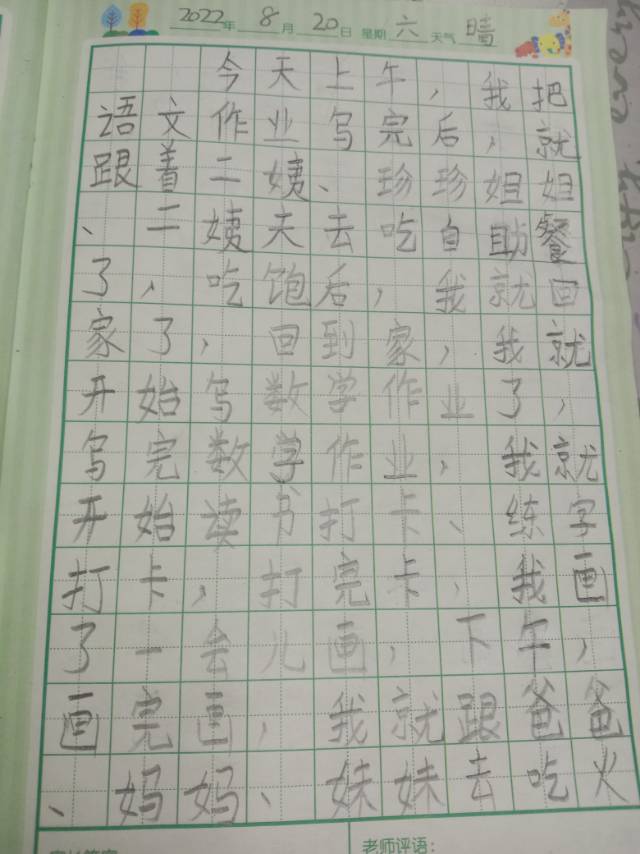 2022年 8月 20日 星期 六 天气 晴
今天上午，我把
语文作业写完后，就
跟着二姨、珍珍姐姐
、二姨夫去吃自助餐
了，吃饱后，我就回
家了，回到家，我就
开始写数学作业了，
写完数学作业，我就
开始读书打卡、练字
打卡，打完卡，我画
了一会儿画，下午，
画完画，我就跟爸爸
、妈妈、妹妹去吃火
老师评语：